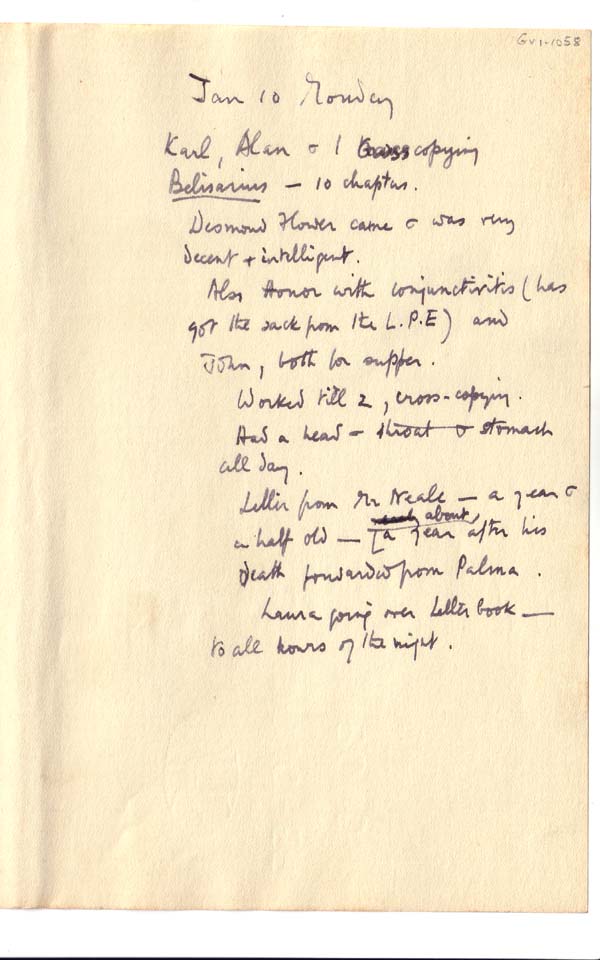 GV1-1058
Jan 10 Monday
Karl, Alan & I copying
Belisarius – 10 chapters.
Desmond Flower came & was very
decent & intelligent.
Also Honor with conjunctivitis (has
got the sack from the L.P.E) and
John, both for supper.
Worked till 2, cross-copying.
Had a head – throat & stomach
all day.
Letter from Mr Neale – a year &
about
a half old – [a year after his
death forwarded from Palma.
Laura going over Letter book –
to all hours of the night.